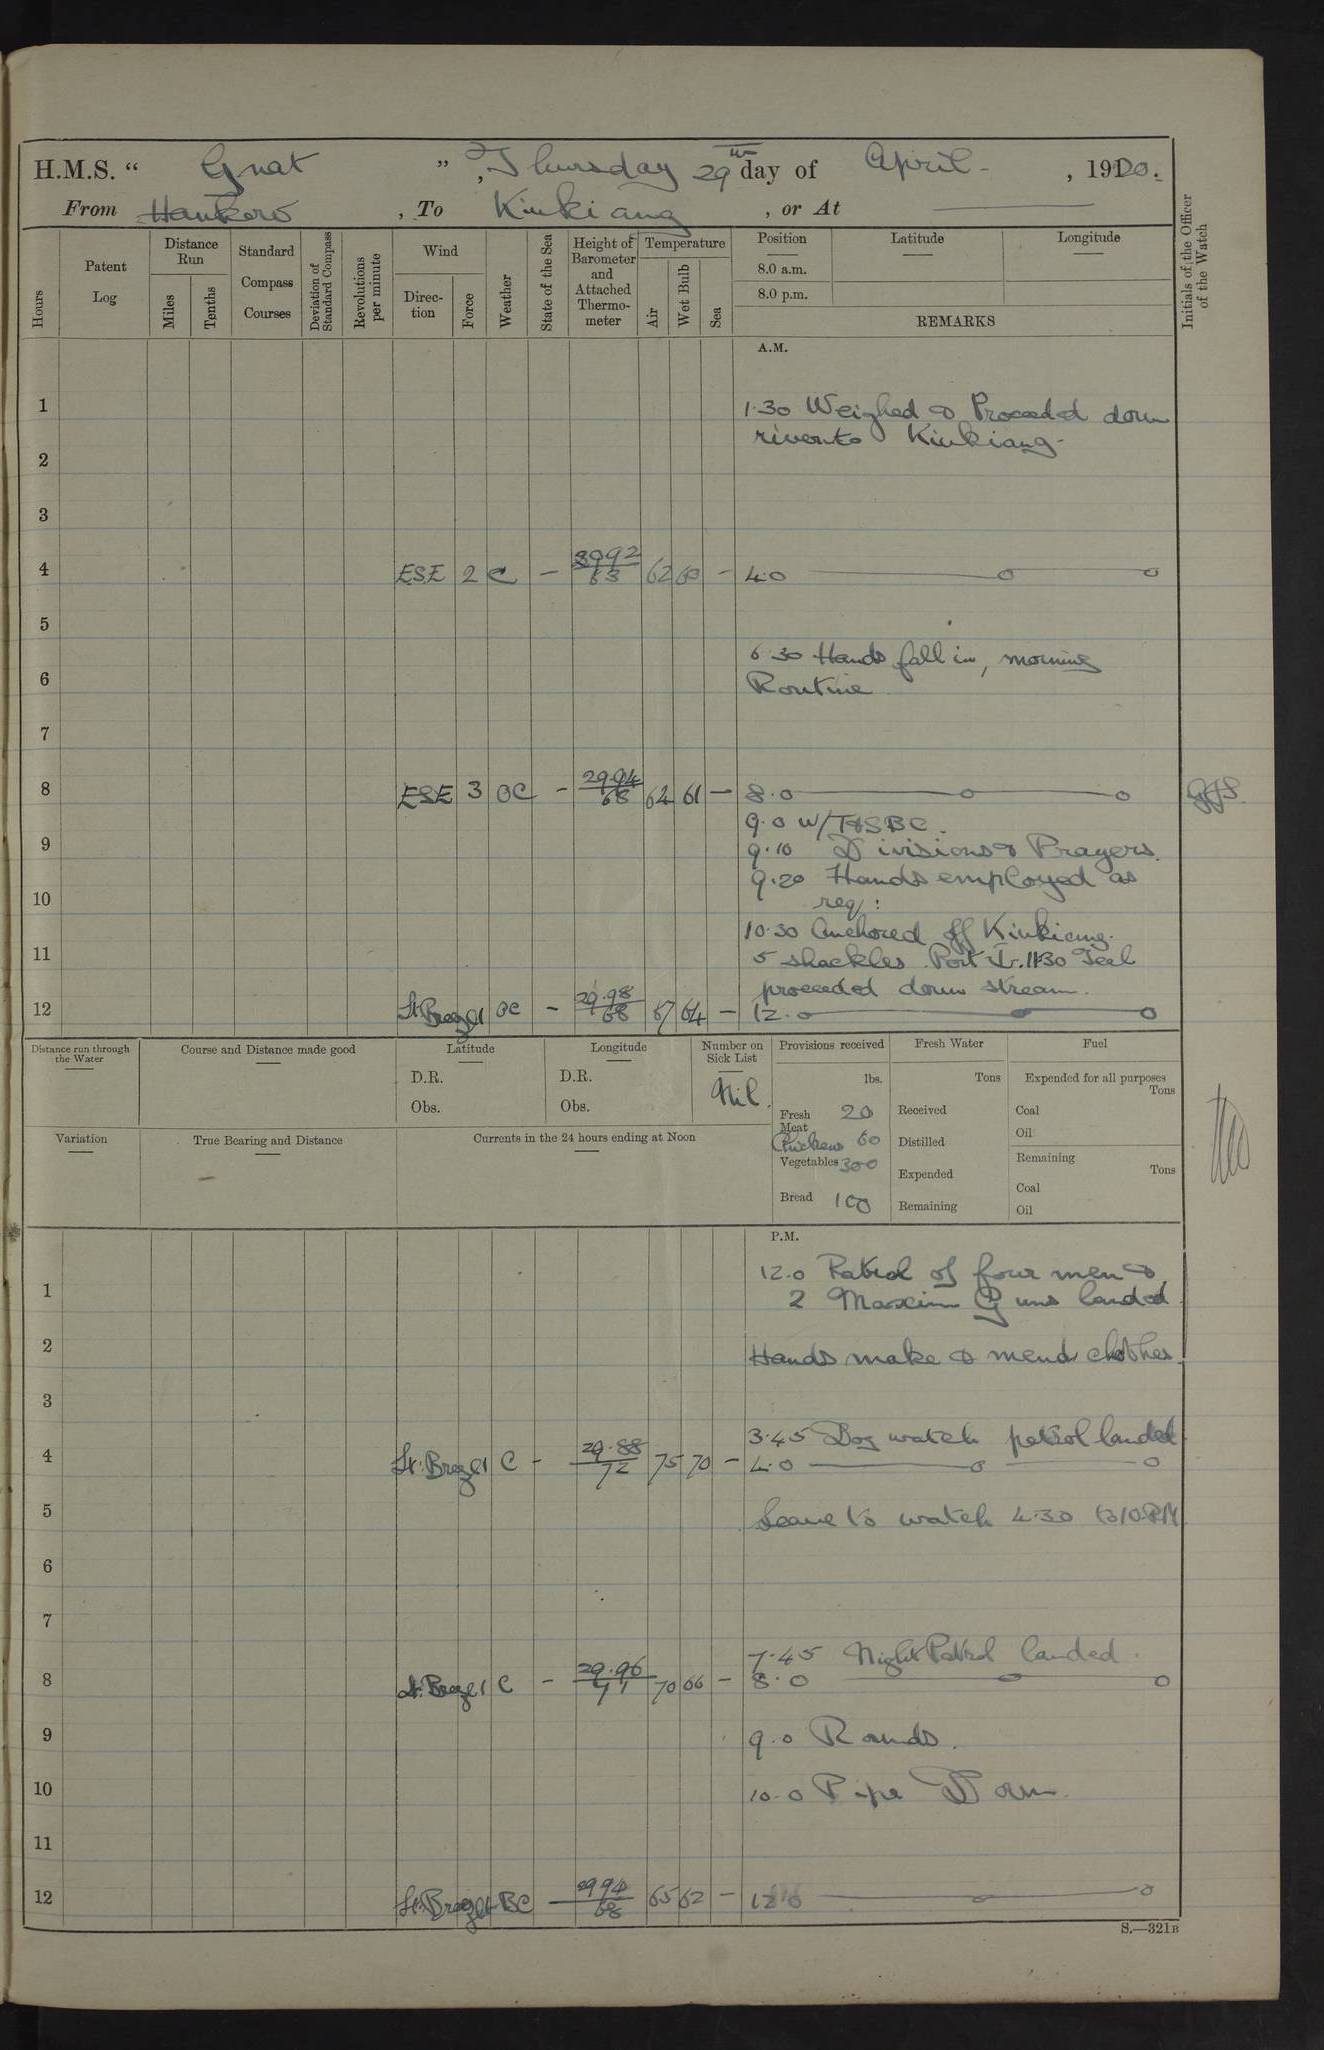 H.M.S. “ Gnat ”, Thursday 29th day of April , 1920.
From Hankow , To Kiukiang , or At
Hours
Patent Log
Distance Run
Miles
Tenths
Standard Compass Courses
Deviation of Standard Compass
Revolutions per minute
Wind
Direction
Force
Weather
State of the Sea
Height of Barometer and Attached Thermometer
Temperature
Air
Wet Bulb
Sea
Position
8.0 a.m.
8.0 p.m.
Latitude
Longitude
REMARKS
Initials of the Officer of the Watch
A.M.
1
1.30 Weighed & Proceeded down
river to Kiukiang-
2
3
4 ESE 2 C - 3092/63 62 60 - 4.0
5
6.30 Hands fall in, morning
6
Routine
7
8 ESE 3 OC - 29.94/68 62 61 - 8.0
9.0 W/T & SBC.
9
9.10 Divisions & Prayers.
9.20 Hands employed as
10
req:
10.30 Anchored off Kiukiang.
11
5 shackles Port 11.30 Teal
proceeded down stream.
12 Lt Breeze 1 OC - 29.98/68 67 64 - 12.0
Distance run through the Water
Course and Distance made good
Latitude
D.R.
Obs.
Longitude
D.R.
Obs.
Number on Sick List
Nil.
Provisions received
lbs.
Fresh Meat 20
Chickens 60
Vegetables 300
Bread 100
Fresh Water
Tons
Received
Distilled
Expended
Remaining
Fuel
Expended for all purposes
Tons
Coal
Oil
Remaining
Tons
Coal
Oil
Variation
True Bearing and Distance
Currents in the 24 hours ending at Noon
P.M.
12.0 Patrol of four men &
1
2 Maxim Guns landed
2
Hands make & mend clothes.
3
3.45 Dog watch patrol landed
4 Lt. Breeze 1 C - 29.88/72 75 70 - 4.0
5
Leave to watch 4.30 to 10.PM
6
7
7.45 Night Patrol landed.
8 Lt. Breeze 1 C - 29.96/71 70 66 - 8.0
9
9.0 Rounds.
10
10.0 Pipe Down.
11
12 Lt. Breeze 1 BC - 2994/68 65 62 - 12.0
S.—321B